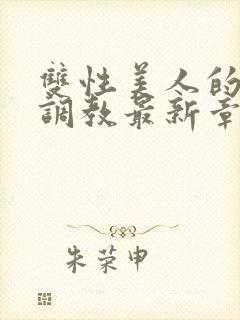 雙性美人的
調教最新章
朱荣申